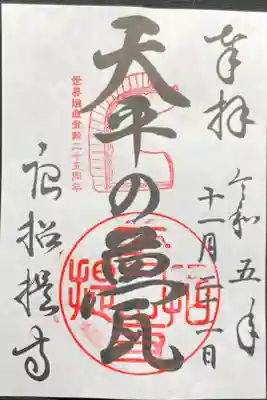 奉拝
令和五年
十一月二十一日
天平の甍
世界遺産登録二十五周年
唐招提寺